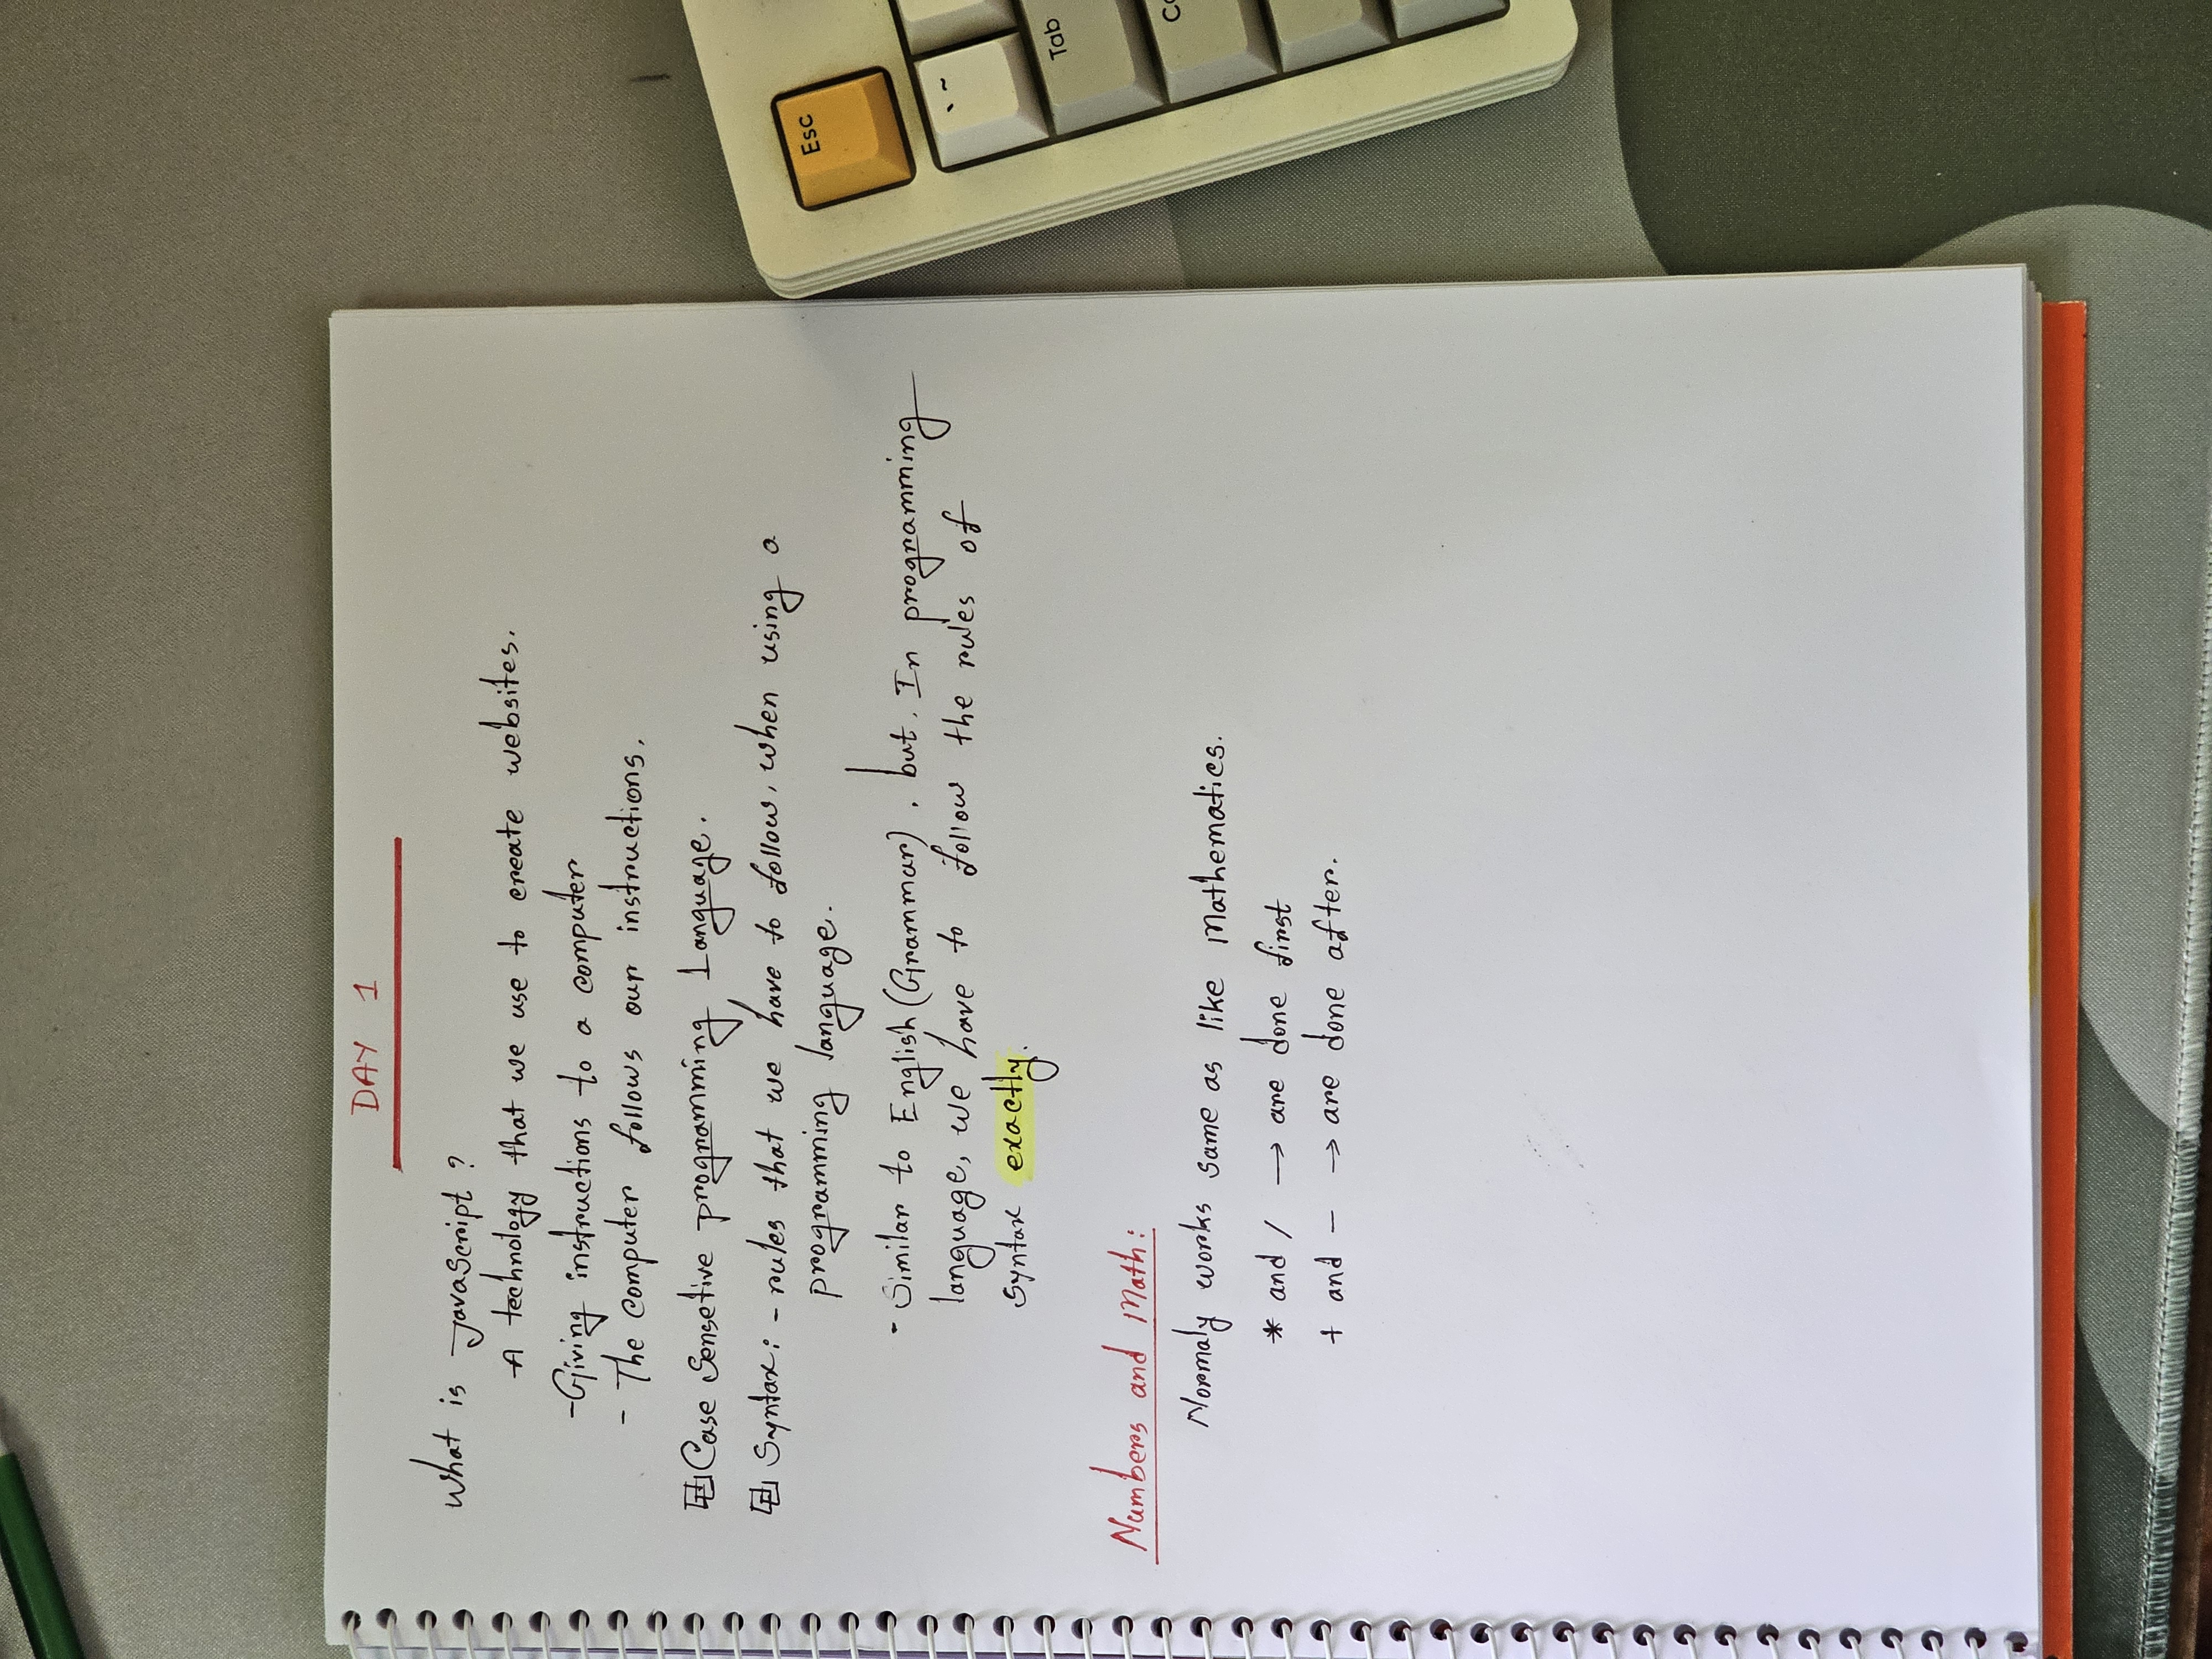 DAY 1
What is JavaScript ?
A technology that we use to create websites.
- Giving instructions to a computer
- The computer follows our instructions.
Case Sensetive programming Language.
Syntax: - rules that we have to follow, when using a
programming language.
- Similar to English (Grammar), but, In programming
language, we have to follow the rules of
syntax exactly.
Numbers and Math:
Normaly works same as like Mathematics.
* and / → are done first
+ and - → are done after.
Esc
` ~
Tab